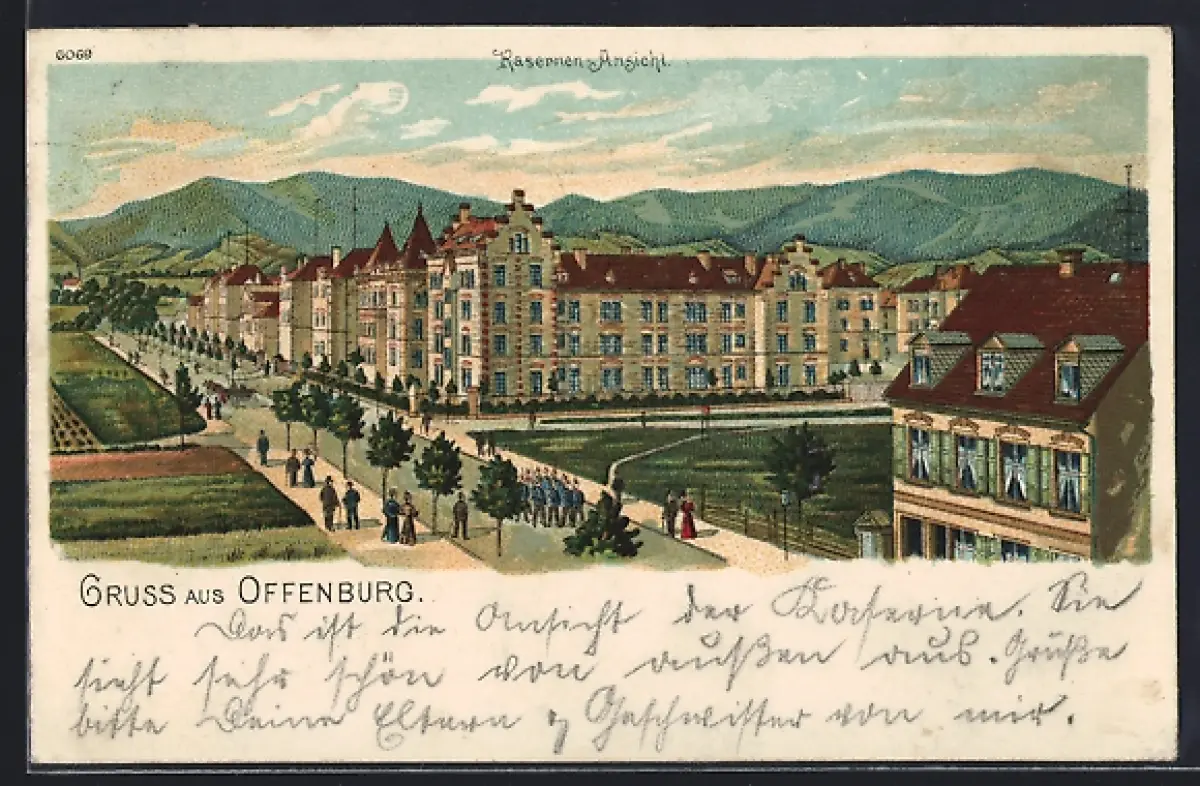 6069
Kasernen-Ansicht.
GRUSS AUS OFFENBURG.
Das ist die Ansicht der Kaserne. Sie
sieht sehr schön von außen aus. Grüße
bitte Deine Eltern & Geschwister von mir.